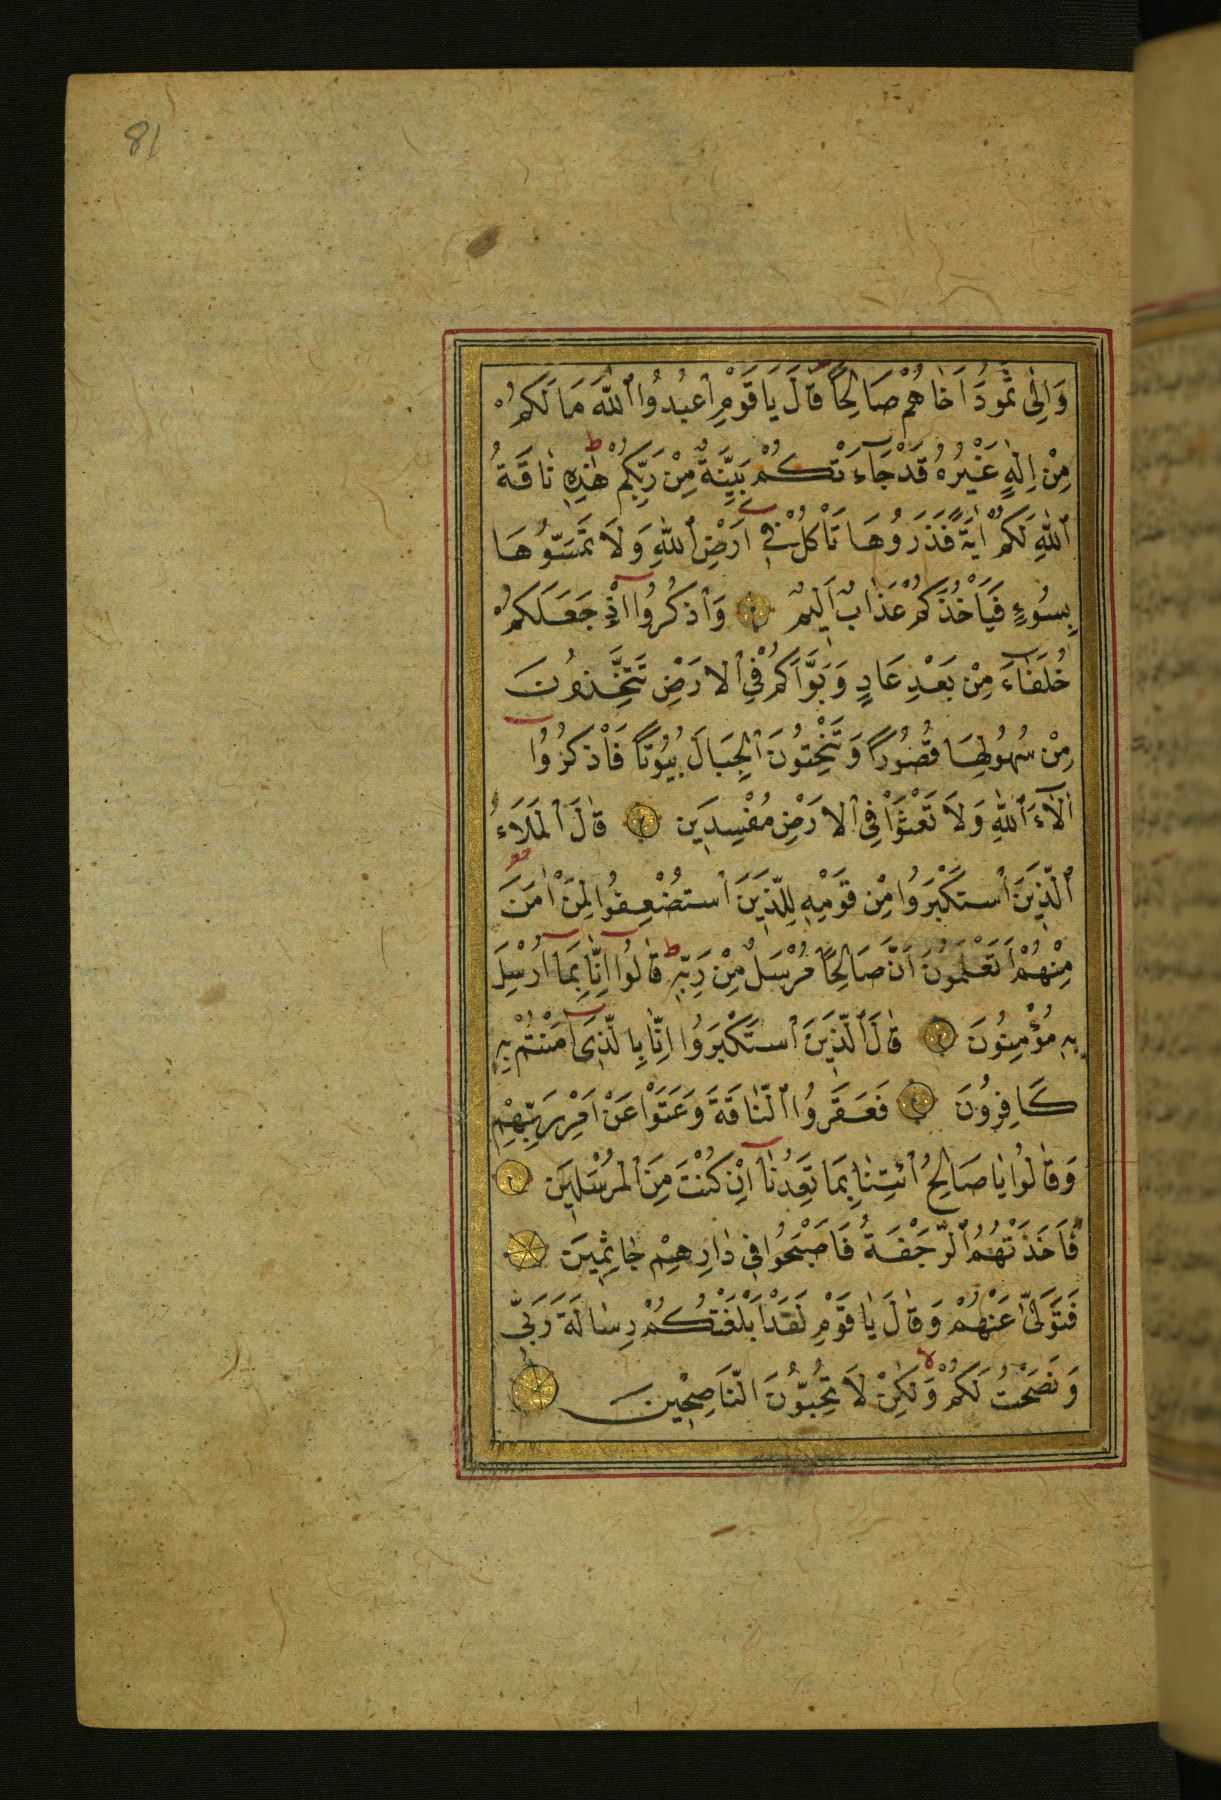 81
وَاِلٰى ثَمُودَ اَخَاهُمْ صَالِحًا قَالَ يَا قَوْمِ اعْبُدُوا اللّٰهَ مَا لَكُمْ
مِنْ اِلٰهٍ غَيْرُهُ قَدْ جَآءَتْكُمْ بَيِّنَةٌ مِنْ رَبِّكُمْ هٰذِهِ نَاقَةُ
اللّٰهِ لَكُمْ اٰيَةً فَذَرُوهَا تَاْكُلْ فِي اَرْضِ اللّٰهِ وَلَا تَمَسُّوهَا
بِسُوءٍ فَيَاْخُذَكُمْ عَذَابٌ اَلِيمٌ وَاذْكُرُوا اِذْ جَعَلَكُمْ
خُلَفَآءَ مِنْ بَعْدِ عَادٍ وَبَوَّاَكُمْ فِي الْاَرْضِ تَتَّخِذُونَ
مِنْ سُهُولِهَا قُصُورًا وَتَنْحِتُونَ الْجِبَالَ بُيُوتًا فَاذْكُرُوا
اٰلَآءَ اللّٰهِ وَلَا تَعْثَوْا فِي الْاَرْضِ مُفْسِدِينَ قَالَ الْمَلَاءُ
الَّذِينَ اسْتَكْبَرُوا مِنْ قَوْمِهِ لِلَّذِينَ اسْتُضْعِفُوا لِمَنْ اٰمَنَ
مِنْهُمْ اَتَعْلَمُونَ اَنَّ صَالِحًا مُرْسَلٌ مِنْ رَبِّهِ قَالُوا اِنَّا بِمَا اُرْسِلَ
بِهِ مُؤْمِنُونَ قَالَ الَّذِينَ اسْتَكْبَرُوا اِنَّا بِالَّذِي اٰمَنْتُمْ بِهِ
كَافِرُونَ فَعَقَرُوا النَّاقَةَ وَعَتَوْا عَنْ اَمْرِ رَبِّهِمْ
وَقَالُوا يَا صَالِحُ ائْتِنَا بِمَا تَعِدُنَا اِنْ كُنْتَ مِنَ الْمُرْسَلِينَ
فَاَخَذَتْهُمُ الرَّجْفَةُ فَاَصْبَحُوا فِي دَارِهِمْ جَاثِمِينَ
فَتَوَلّٰى عَنْهُمْ وَقَالَ يَا قَوْمِ لَقَدْ اَبْلَغْتُكُمْ رِسَالَةَ رَبِّي
وَنَصَحْتُ لَكُمْ وَلٰكِنْ لَا تُحِبُّونَ النَّاصِحِينَ